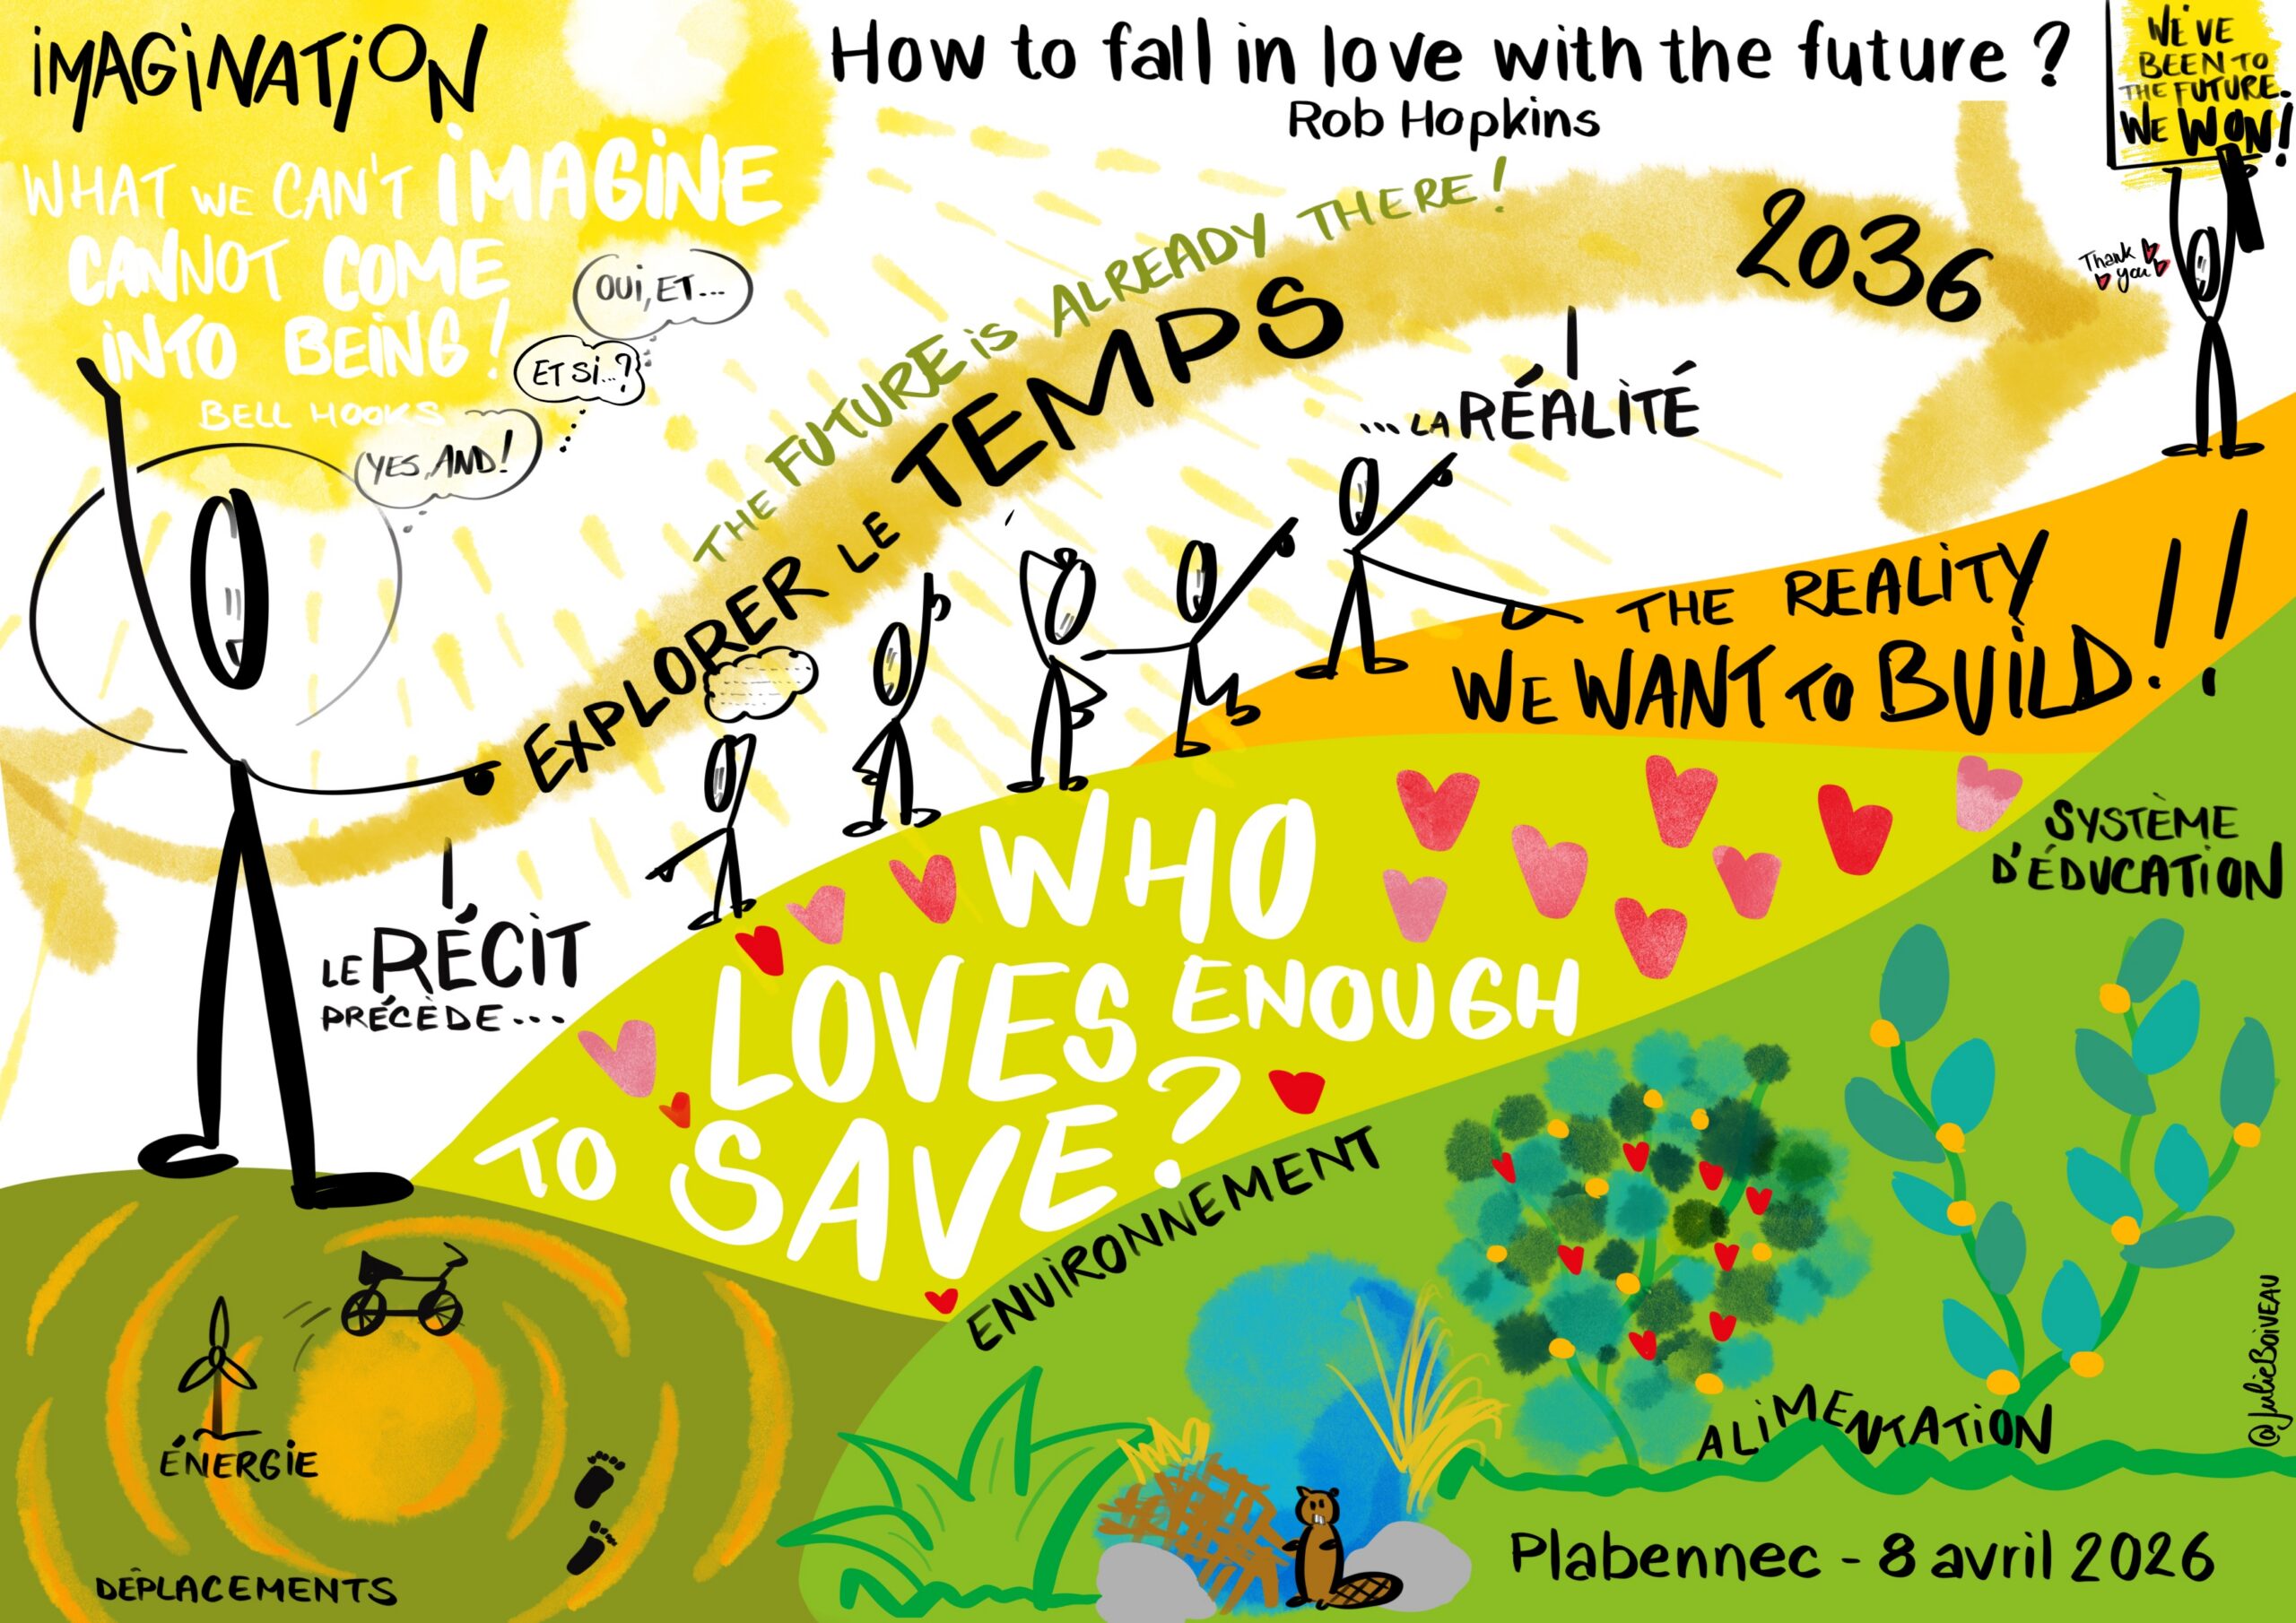 iMAGiNATiON
WHAT WE CAN'T iMAGiNE
CANNOT COME
iNTO BEiNG !
BELL HOOKS
YES, AND!
ET Si...?
OUi, ET...
How to fall in love with the future ?
Rob Hopkins
WE'VE
BEEN TO
THE FUTURE.
WE WON!
Thank
you
THE FUTURE iS ALREADY THERE !
EXPLORER LE TEMPS
2036
LE RÉCiT
PRÉCÈDE...
...LA RÉALiTÉ
THE REALiTY
WE WANT TO BUiLD !!
WHO
LOVES ENOUGH
TO SAVE ?
SYSTÈME
D'ÉDUCATiON
ENViRONNEMENT
ALiMENTATiON
ÉNERGiE
DÉPLACEMENTS
Plabennec - 8 avril 2026
@JulieBoiVEAU